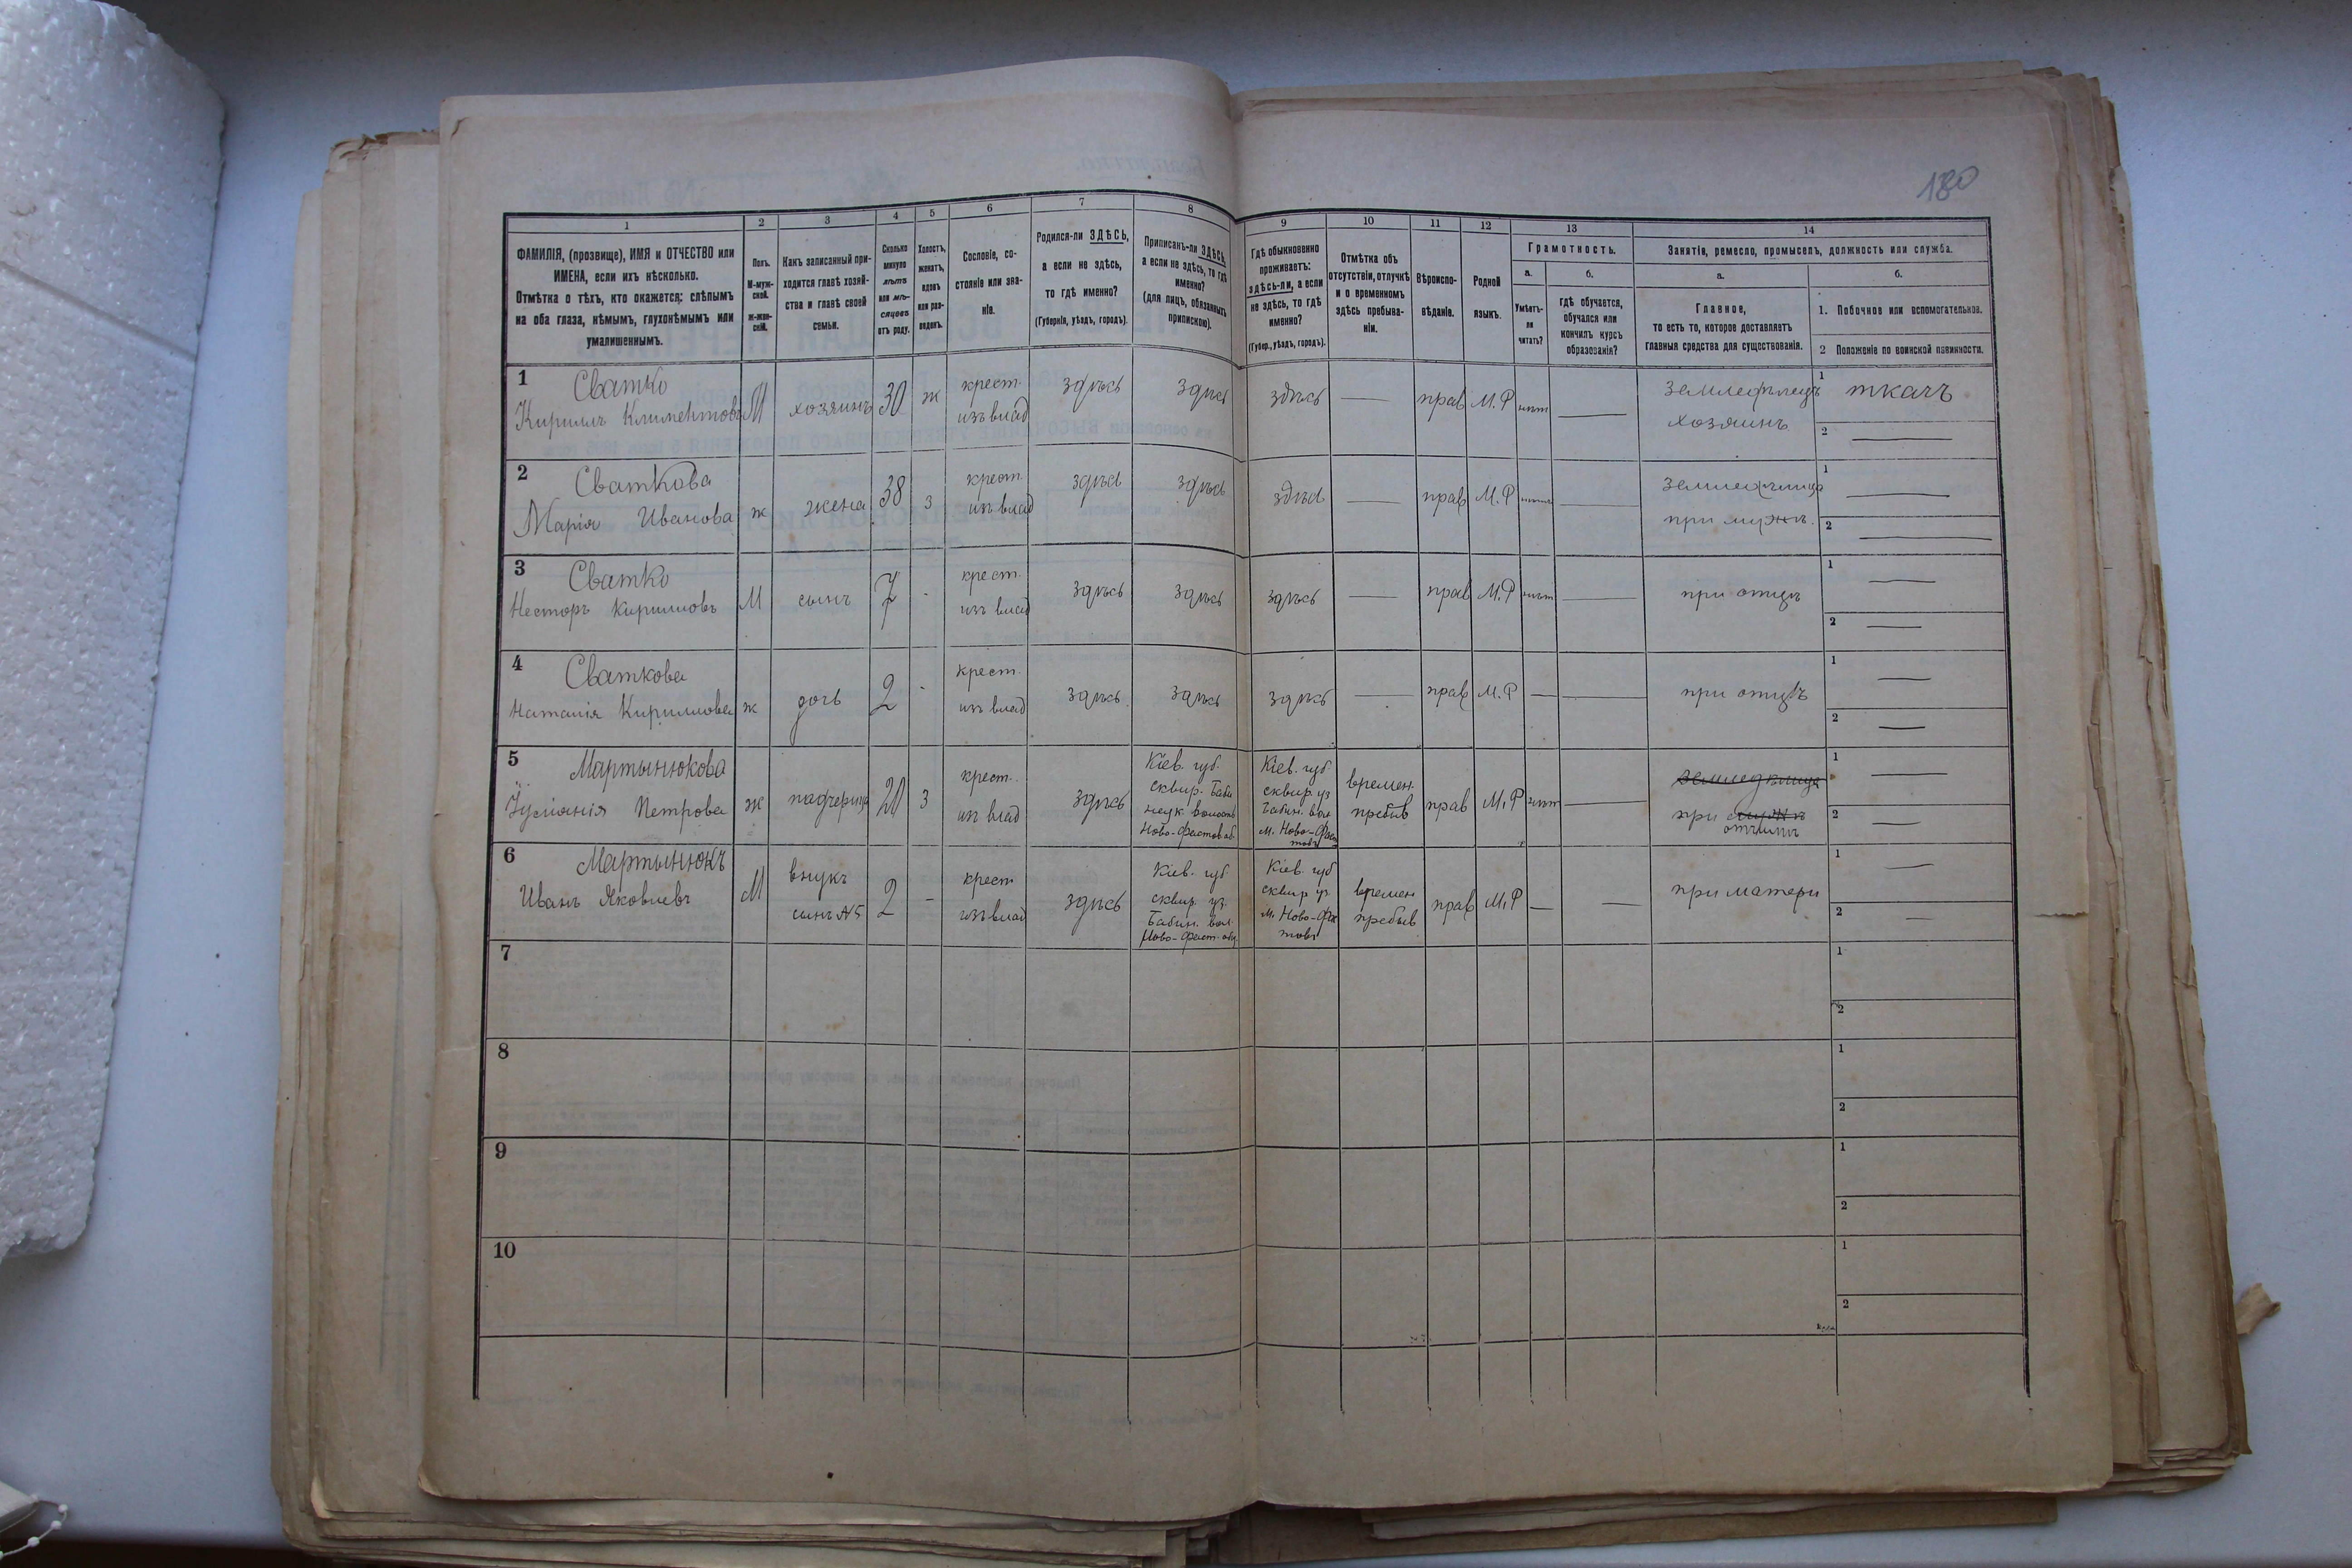 180
1 2 3 4 5 6 7 8 9 10 11 12 13 14
ФАМИЛІЯ, (прозвище), ИМЯ и ОТЧЕСТВО или
ИМЕНА, если ихъ нѣсколько.
Отмѣтка о тѣхъ, кто окажется: слѣпымъ
на оба глаза, нѣмымъ, глухонѣмымъ или
умалишеннымъ.
Полъ.
М-муж-
ской.
ж-жен-
скій.
Какъ записанный при-
ходится главѣ хозяй-
ства и главѣ своей
семьи.
Сколько
минуло
лѣтъ
или мѣ-
сяцевъ
отъ роду.
Холостъ,
женатъ,
вдовъ
или раз-
веденъ.
Сословіе, со-
стояніе или зва-
ніе.
Родился-ли ЗДѢСЬ,
а если не здѣсь,
то гдѣ именно?
(Губернія, уѣздъ, городъ).
Приписанъ-ли ЗДѢСЬ,
а если не здѣсь, то гдѣ
именно?
(для лицъ, обязанныхъ
припискою).
Гдѣ обыкновенно
проживаетъ:
здѣсь-ли, а если
не здѣсь, то гдѣ
именно?
(Губер., уѣздъ, городъ).
Отмѣтка объ
отсутствіи, отлучкѣ
и о временномъ
здѣсь пребыва-
ніи.
Вѣроиспо-
вѣданіе.
Родной
языкъ.
Грамотность.
а.
Умѣетъ-
ли
читать?
б.
гдѣ обучается,
обучался или
кончилъ курсъ
образованія?
Занятія, ремесло, промыселъ, должность или служба.
а.
Главное,
то есть то, которое доставляетъ
главныя средства для существованія.
б.
1. Побочное или вспомогательное.
2 Положеніе по воинской повинности.
1 Сватко
Кириллъ Климентовъ М хозяинъ 30 ж крест. изъ влад здѣсь здѣсь здѣсь — прав М.Р нѣтъ —
земледѣлецъ
хозяинъ
1 ткачъ
2 —
2 Сваткова
Марія Иванова ж жена 38 з крест. изъ влад здѣсь здѣсь здѣсь — прав М.Р нѣтъ —
земледѣлица
при мужѣ.
1 —
2 —
3 Сватко
Несторъ Кирилловъ М сынъ 7 - крест. изъ влад здѣсь здѣсь здѣсь — прав М.Р нѣтъ —
при отцѣ
1 —
2 —
4 Сваткова
Наталія Кириллова ж дочь 2 - крест. изъ влад здѣсь здѣсь здѣсь — прав М.Р — —
при отцѣ
1 —
2 —
5 Мартынюкова
Петрова ж падчерица 20 з крест. изъ влад здѣсь
Кіев. губ.
сквир. Баби
нецк волость
Ново-Фастов об.
Кіев. губ
сквир. уз
Бабин. вол
м. Ново-Фас
товъ
времен.
пребыв
прав М.Р нѣтъ —
земледѣлица
при мужѣ
отчимѣ
1 —
2 —
6 Мартынюкъ
Иванъ Яковлевъ М
внукъ
сынъ №5
2 - крест изъ влад здѣсь
Кіев. губ
сквир. уз.
Бабин. вол
Ново-Фаст. общ
Кіев. губ
сквир уз
м. Ново-Фас
товъ
времен
пребыв
прав М.Р — —
при матери
1 —
2 —
7
1
2
8
1
2
9
1
2
10
1
2